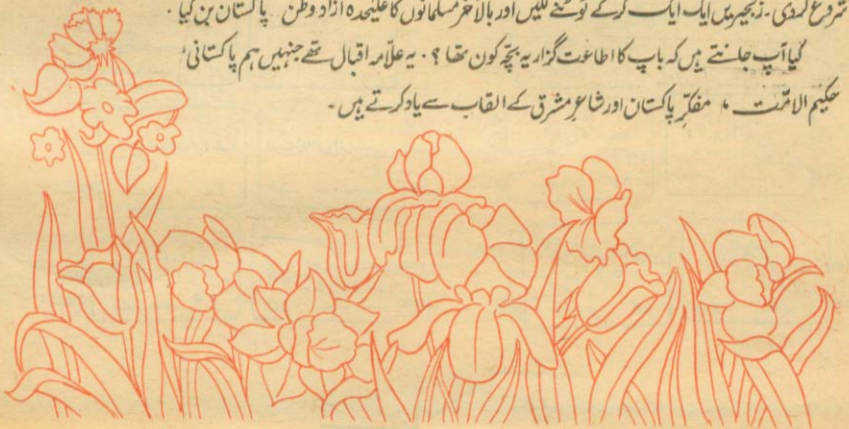 شروع کردی۔ زنجیریں ایک ایک کرکے ٹوٹنے لگیں اور بالآخر مسلمانوں کا علیٰحدہ آزاد وطن پاکستان بن گیا۔
کیا آپ جانتے ہیں کہ باپ کا اطاعت گزار یہ بچّہ کون تھا؟۔ یہ علّامہ اقبال تھے جنہیں ہم پاکستانی
حکیم الامّت، مفکّرِ پاکستان اور شاعرِ مشرق کے القاب سے یاد کرتے ہیں۔